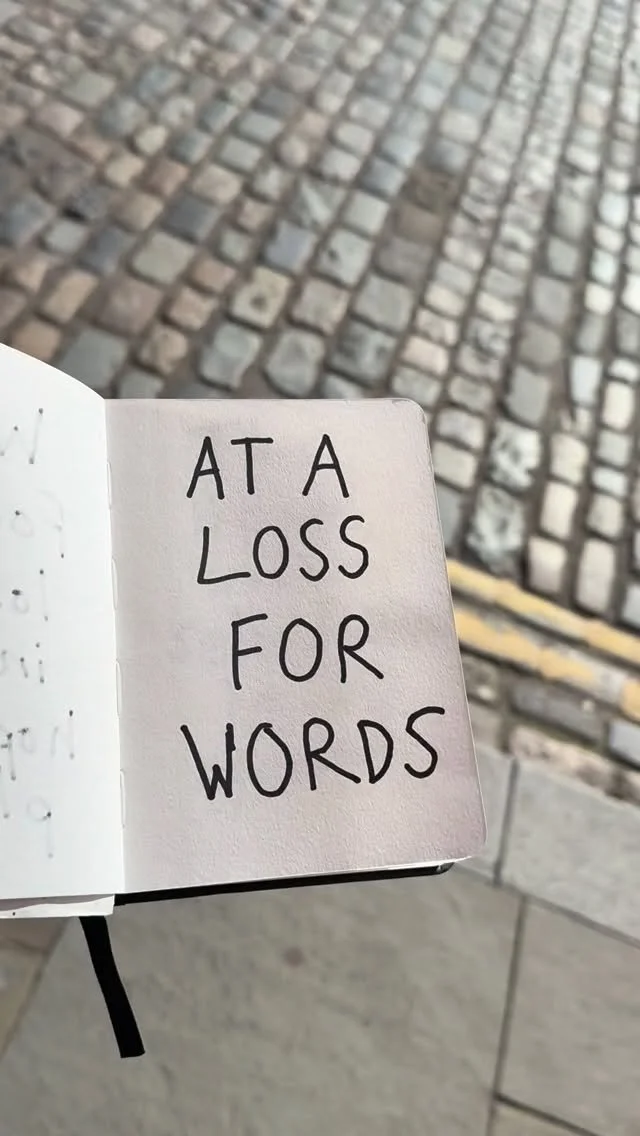 AT A
LOSS
FOR
WORDS